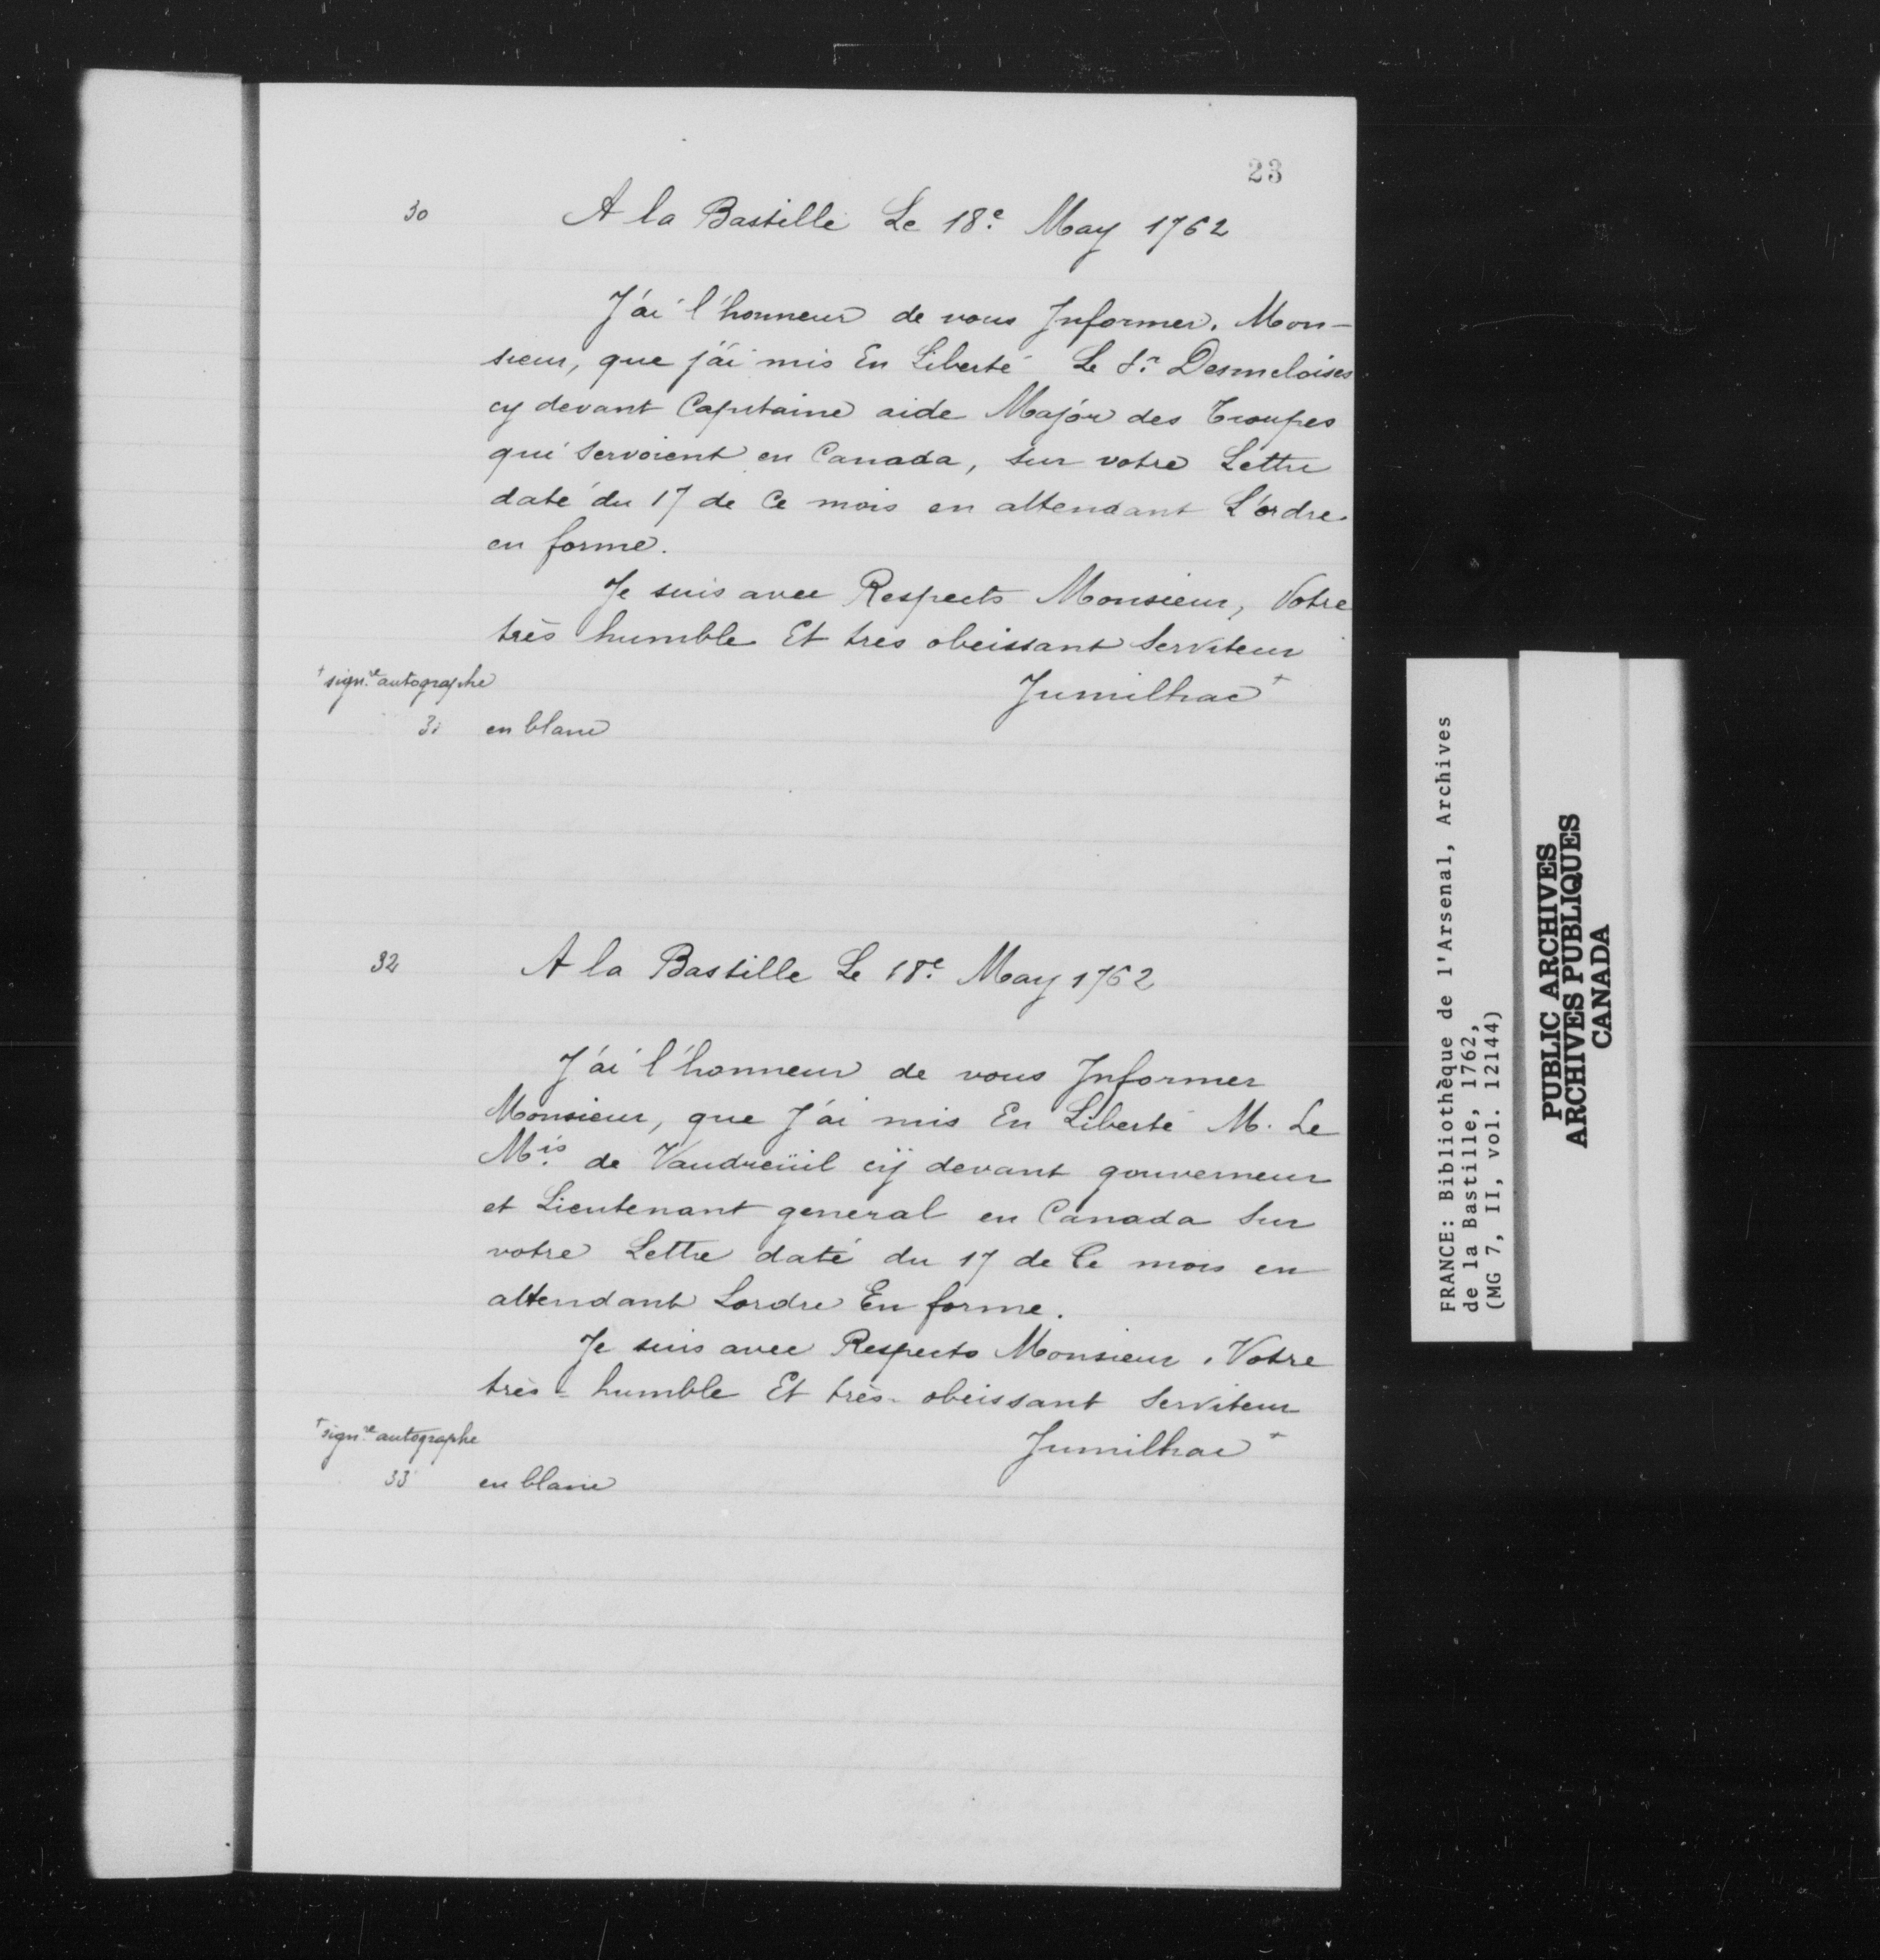 23
30 A la Bastille Le 18e May 1762
J'ai l'honneur de vous Informer, Mon-
sieur, que j'ai mis En Liberté Le Sr Desmeloises
cy devant Capitaine aide Major des Troupes
qui Servoient en Canada, sur votre Lettre
daté du 17 de Ce mois en attendant L'ordre
en forme.
Je suis avec Respects Monsieur, Votre
très humble Et très obeissant Serviteur
+ signre autographe Jumilhac +
31 en blanc
32 A la Bastille Le 18e May 1762
J'ai l'honneur de vous Informer
Monsieur, que J'ai mis En Liberté M. Le
Mis de Vaudreüil cÿ devant gouverneur
et Lieutenant general en Canada Sur
votre Lettre daté du 17 de Ce mois en
attendant Lordre En forme.
Je suis avec Respects Monsieur, Votre
très-humble Et très-obeissant Serviteur
+ signre autographe Jumilhac +
33 en blanc
FRANCE: Bibliothèque de l'Arsenal, Archives
de la Bastille, 1762,
(MG 7, II, vol. 12144)
PUBLIC ARCHIVES
ARCHIVES PUBLIQUES
CANADA